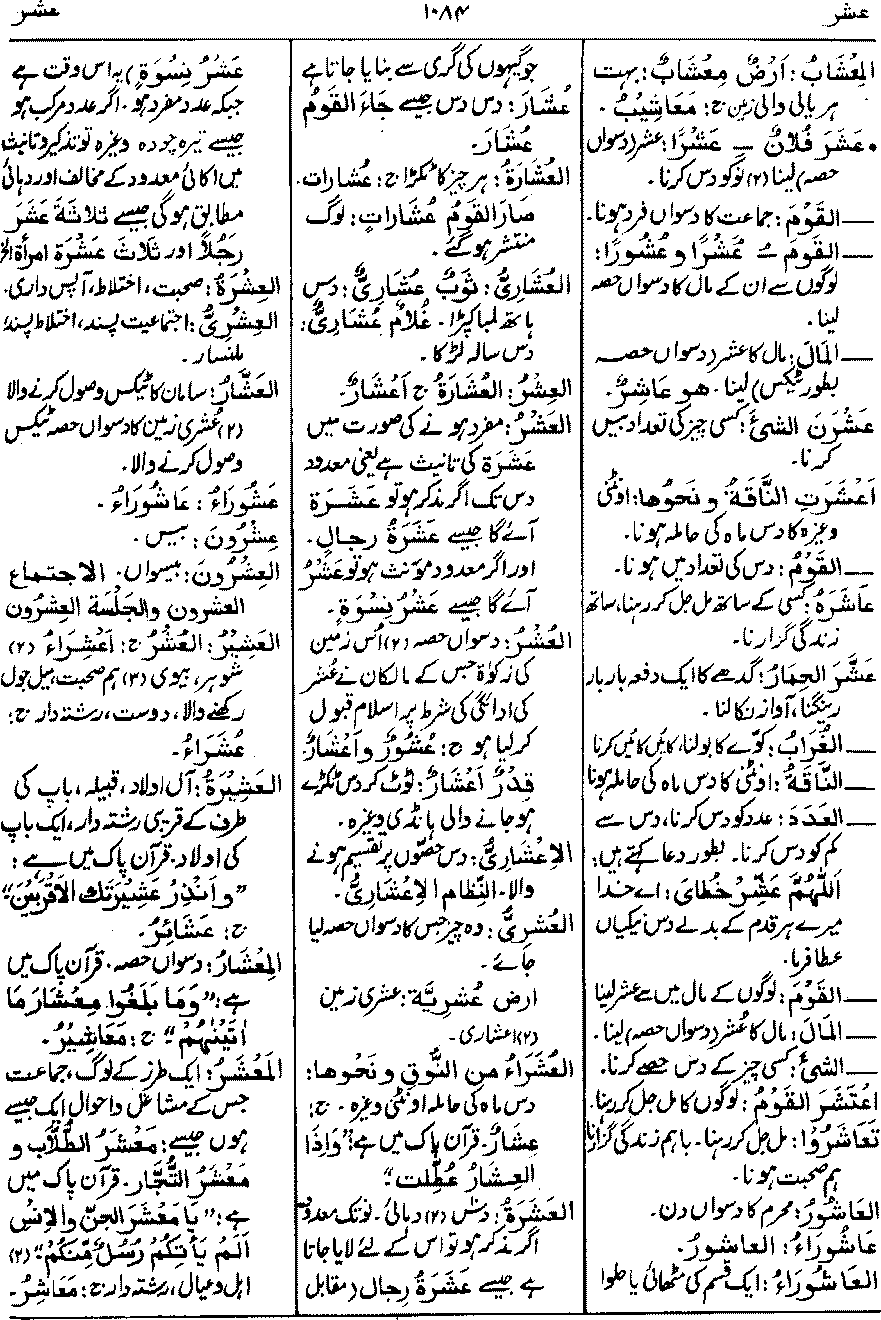 عشر ۱۰۸۴ عشر
المِعْشَابُ: اَرْضٌ مِعْشَابٌ: بہت
ہریالی والی زمین ج: مَعَاشِیْبُ۔
• عَشَرَ فُلَانٌ ــِـ عَشْرًا: عشر (دسواں
حصہ) لینا (۲) نو کو دس کرنا۔
ــــ القَوْمَ: جماعت کا دسواں فرد ہونا۔
ــــ القَوْمَ ــُـ عُشْرًا و عُشُورًا:
لوگوں سے ان کے مال کا دسواں حصہ
لینا۔
ــــ المَالَ: مال کا عشر (دسواں حصہ
بطور ٹیکس) لینا۔ هو عَاشِرٌ۔
عَشْرَنَ الشیءَ: کسی چیز کی تعداد بیس
کرنا۔
اَعْشَرَتِ النَّاقَةُ و نَحوُها: اونٹنی
وغیرہ کا دس ماہ کی حاملہ ہونا۔
ــــ القَوْمُ: دس کی تعداد میں ہونا۔
عَاشَرَهُ: کسی کے ساتھ مل جل کر رہنا، ساتھ
زندگی گزارنا۔
عَشَّرَ الحِمَارُ: گدھے کا ایک دفعہ بار بار
رینگنا، آواز نکالنا۔
ــــ الغُرَابُ: کوّے کا بولنا، کائیں کائیں کرنا
ــــ النَّاقَةُ: اونٹنی کا دس ماہ کی حاملہ ہونا
ــــ العَدَدَ: عدد کو دس کرنا، دس سے
کم کو دس کرنا۔ بطور دعا کہتے ہیں:
اَللّٰهُمَّ عَشِّرْ خُطَایَ: اے خدا
میرے ہر قدم کے بدلے دس نیکیاں
عطا فرما۔
ــــ القَوْمَ: لوگوں کے مال میں سے عشر لینا
ــــ المَالَ: مال کا عُشر (دسواں حصہ) لینا۔
ــــ الشیءَ: کسی چیز کے دس حصے کرنا۔
اعْتَشَرَ القَوْمُ: لوگوں کا مل جل کر رہنا۔
تَعَاشَرُوا: مل جل کر رہنا۔ باہم زندگی گزارنا
ہم صحبت ہونا۔
العَاشُورُ: محرم کا دسواں دن۔
عَاشُورَاءُ: العاشورُ۔
العَاشُورَاءُ: ایک قسم کی مٹھائی یا حلوا
جو گیہوں کی گری سے بنایا جاتا ہے
عُشَارَ: دس دس جیسے جَاءَ القَوْمُ
عُشَارَ۔
العُشَارَةُ: ہر چیز کا ٹکڑا ج: عُشارات۔
صَارَ القَوْمُ عُشَارَاتٍ: لوگ
منتشر ہو گئے۔
العُشَارِیُّ: ثَوْبٌ عُشَارِیٌّ: دس
ہاتھ لمبا کپڑا۔ غُلامٌ عُشَارِیٌّ:
دس سالہ لڑکا۔
العِشْرُ: العُشَارَةُ ج اَعْشَارٌ۔
العَشْرُ: مفرد ہونے کی صورت میں
عَشَرَة کی تانیث ہے یعنی معدود
دس تک اگر مذکر ہو تو عَشَرَة
آئے گا جیسے عَشَرَةُ رِجالٍ۔
اور اگر معدود مؤنث ہو تو عَشْرُ
آئے گا جیسے عَشْرُ نِسْوَةٍ۔
العُشْرُ: دسواں حصہ (۲) اُس زمین
کی زکوٰۃ جس کے مالکان نے عُشر
کی ادائگی کی شرط پر اسلام قبول
کر لیا ہو ج: عُشُورٌ و اَعْشَارٌ۔
قِدْرٌ اَعْشَارٌ: ٹوٹ کر دس ٹکڑے
ہو جانے والی ہانڈی وغیرہ۔
الاِعْشَارِیُّ: دس حصّوں پر تقسیم ہونے
والا۔ النِّظام الاِعْشَارِیُّ۔
العُشْرِیُّ: وہ چیز جس کا دسواں حصہ لیا
جائے۔
ارض عُشْرِیَّة: عشری زمین
(۲) اعشاری۔
العُشَرَاءُ من النُّوقِ و نَحوِها:
دس ماہ کی حاملہ اونٹنی وغیرہ۔ ج:
عِشَارٌ۔ قرآن پاک میں ہے: "وَاِذَا
العِشَارُ عُطِّلت"
العَشَرَةُ: دس (۲) دہائی۔ نوتک معدود
اگر مذکر ہو تو اس کے لئے لایا جاتا
ہے جیسے عَشَرَةُ رِجال (مقابل
عَشْرُ نِسْوَةٍ) یہ اس وقت ہے
جبکہ عدد مفرد ہو۔ اگر عدد مرکب ہو
جیسے تیرہ چودہ وغیرہ تو تذکیر و تانیث
میں اکائی معدود کے مخالف اور دہائی
مطابق ہو گی جیسے ثلاثةَ عَشَرَ
رَجُلاً اور ثلاثَ عَشْرَة امرأة الخ
العِشْرَةُ: صحبت، اختلاط، آپس داری۔
العِشْرِیُّ: اجتماعیت پسند، اختلاط پسند،
ملنسار۔
العَشَّارُ: سامان کا ٹیکس وصول کرنے والا
(۲) عُشری زمین کا دسواں حصہ ٹیکس
وصول کرنے والا۔
عَشُورَاءُ: عَاشُورَاءُ۔
عِشْرُونَ: بیس۔
العِشْرُونَ: بیسواں۔ الاجتماع
العشرون والجَلْسَة العِشْرُون
العَشِیْرُ: العُشْرُ ج: اَعْشِرَاءُ (۲)
شوہر، بیوی (۳) ہم صحبت، میل جول
رکھنے والا، دوست، رشتہ دار ج:
عُشَرَاءُ۔
العَشِیْرَةُ: آل اولاد، قبیلہ، باپ کی
طرف کے قریبی رشتہ دار، ایک باپ
کی اولاد۔ قرآن پاک میں ہے:
"وَاَنْذِرْ عَشِیْرَتَكَ الاَقْرَبِیْنَ"
ج: عَشَائِرُ۔
المِعْشَارُ: دسواں حصہ۔ قرآن پاک میں
ہے: "وَمَا بَلَغُوا مِعْشَارَ مَا
اٰتَیْنٰهُمْ" ج: مَعَاشِیْرُ۔
المَعْشَرُ: ایک طرز کے لوگ، جماعت
جس کے مشاغل و احوال ایک جیسے
ہوں جیسے: مَعْشَرُ الطُّلَّاب و
مَعْشَرُ التُّجَّار۔ قرآن پاک میں
ہے: "یَا مَعْشَرَ الجِنِّ والاِنْسِ
اَلَمْ یَأْتِكُمْ رُسُلٌ مِّنْكُمْ" (۲)
اہل و عیال، رشتہ دار ج: مَعَاشِرُ۔